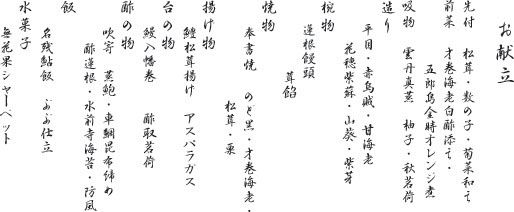 お献立
先付　松茸・数の子・菊菜和え
前菜　才巻海老白酢添え・
五郎島金時オレンジ煮
吸物　雲丹真蒸　柚子・秋茗荷
造り
平目・赤烏賊・甘海老
花穂紫蘇・山葵・紫芽
椀物
蓮根饅頭
茸餡
焼物
奉書焼　のど黒・才巻海老・
松茸・栗
揚げ物
鱧松茸揚げ　アスパラガス
台の物
鰻八幡巻　酢取茗荷
酢の物
吹寄　蒸鮑・車鯛昆布締め
酢蓮根・水前寺海苔・防風
飯
名残鮎飯　ぶぶ仕立
水菓子
無花果シャーベット